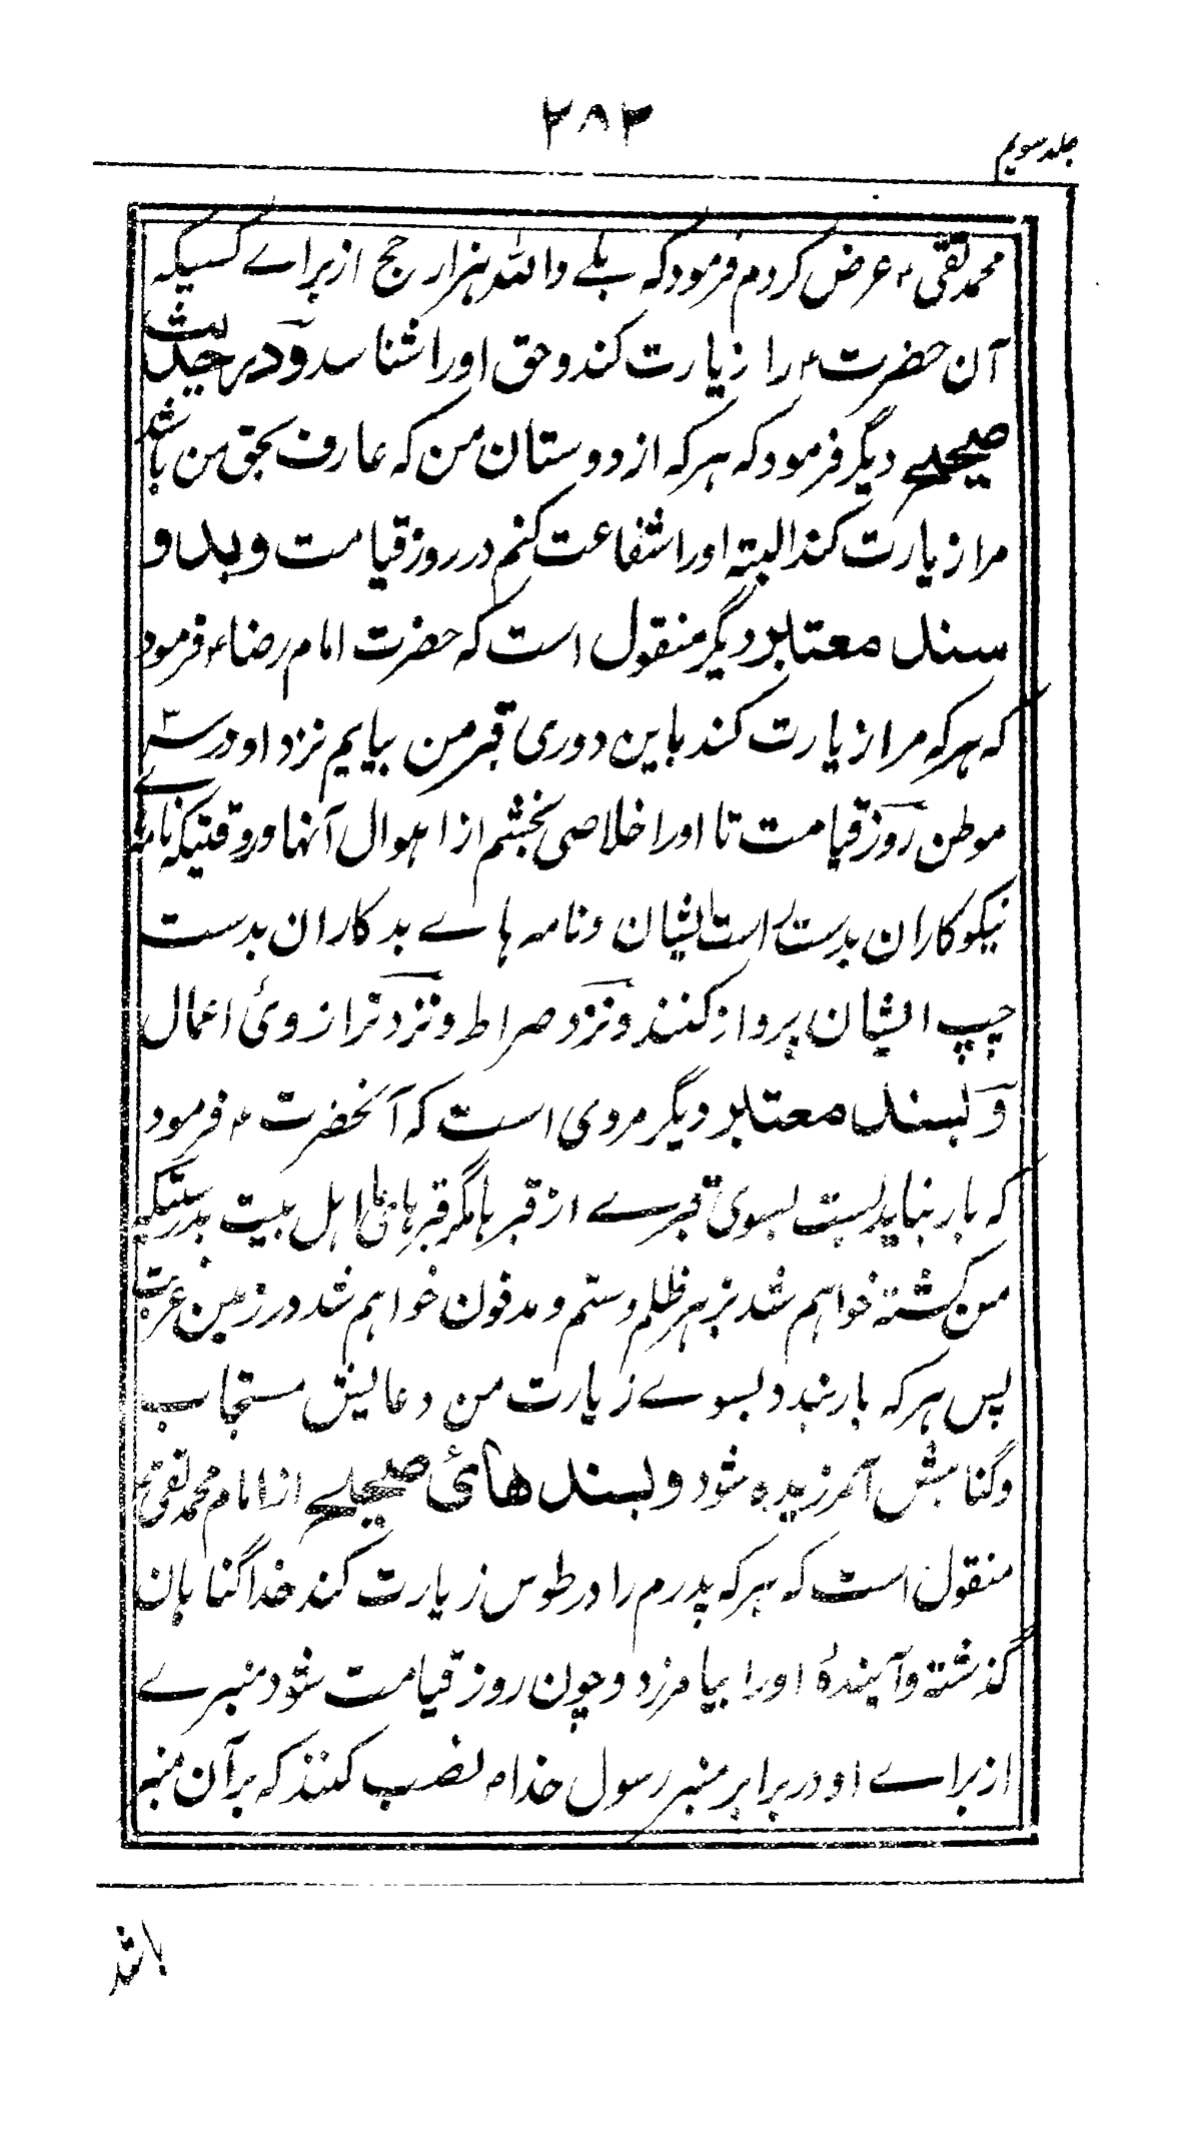 ۲۸۲
جلد سویم
محمد تقی ۴ عرض کردم فرمود که بلے واللہ ہزار حج از براے کسیکہ
آن حضرت ۴ را زیارت کند و حق او را شناسد و در حدیث
صحیحے دیگر فرمود که ہر کہ از دوستان من کہ عارف بحق من باشد
مرا زیارت کند البتہ او را شفاعت کنم در روز قیامت و بدو
سند معتبر دیگر منقول است کہ حضرت امام رضا ۴ فرمود
کہ ہر کہ مرا زیارت کند باین دوری قبر من بیایم نزد او در سہ
موطن روز قیامت تا او را خلاصی بخشم از اہوال آنہا در وقتیکہ نامہاے
نیکوکاران بدست راست ایشان و نامہ ہاے بدکاران بدست
چپ ایشان پرواز کنند و نزد صراط و نزد ترازوی اعمال
و بسند معتبر دیگر مروی است کہ آنحضرت ۴ فرمود
کہ بار نباید بست بسوی قبرے از قبرہا مگر قبرہای ما اہل بیت بدرستیکہ
من کشتہ خواہم شد بزہر ظلم و ستم و مدفون خواہم شد در زمین غربت
پس ہر کہ بار بندد بسوے زیارت من دعایش مستجاب
و گناہش آمرزیدہ شود و بسند ھائ صحیحے از امام محمد تقی ۴
منقول است کہ ہر کہ پدرم را در طوس زیارت کند خدا گناہان
گذشتہ و آیندۂ او را بیامرزد و چون روز قیامت شود منبرے
از براے او در برابر منبر رسول خدا ۴ نصب کنند کہ بر آن منبر
باشد